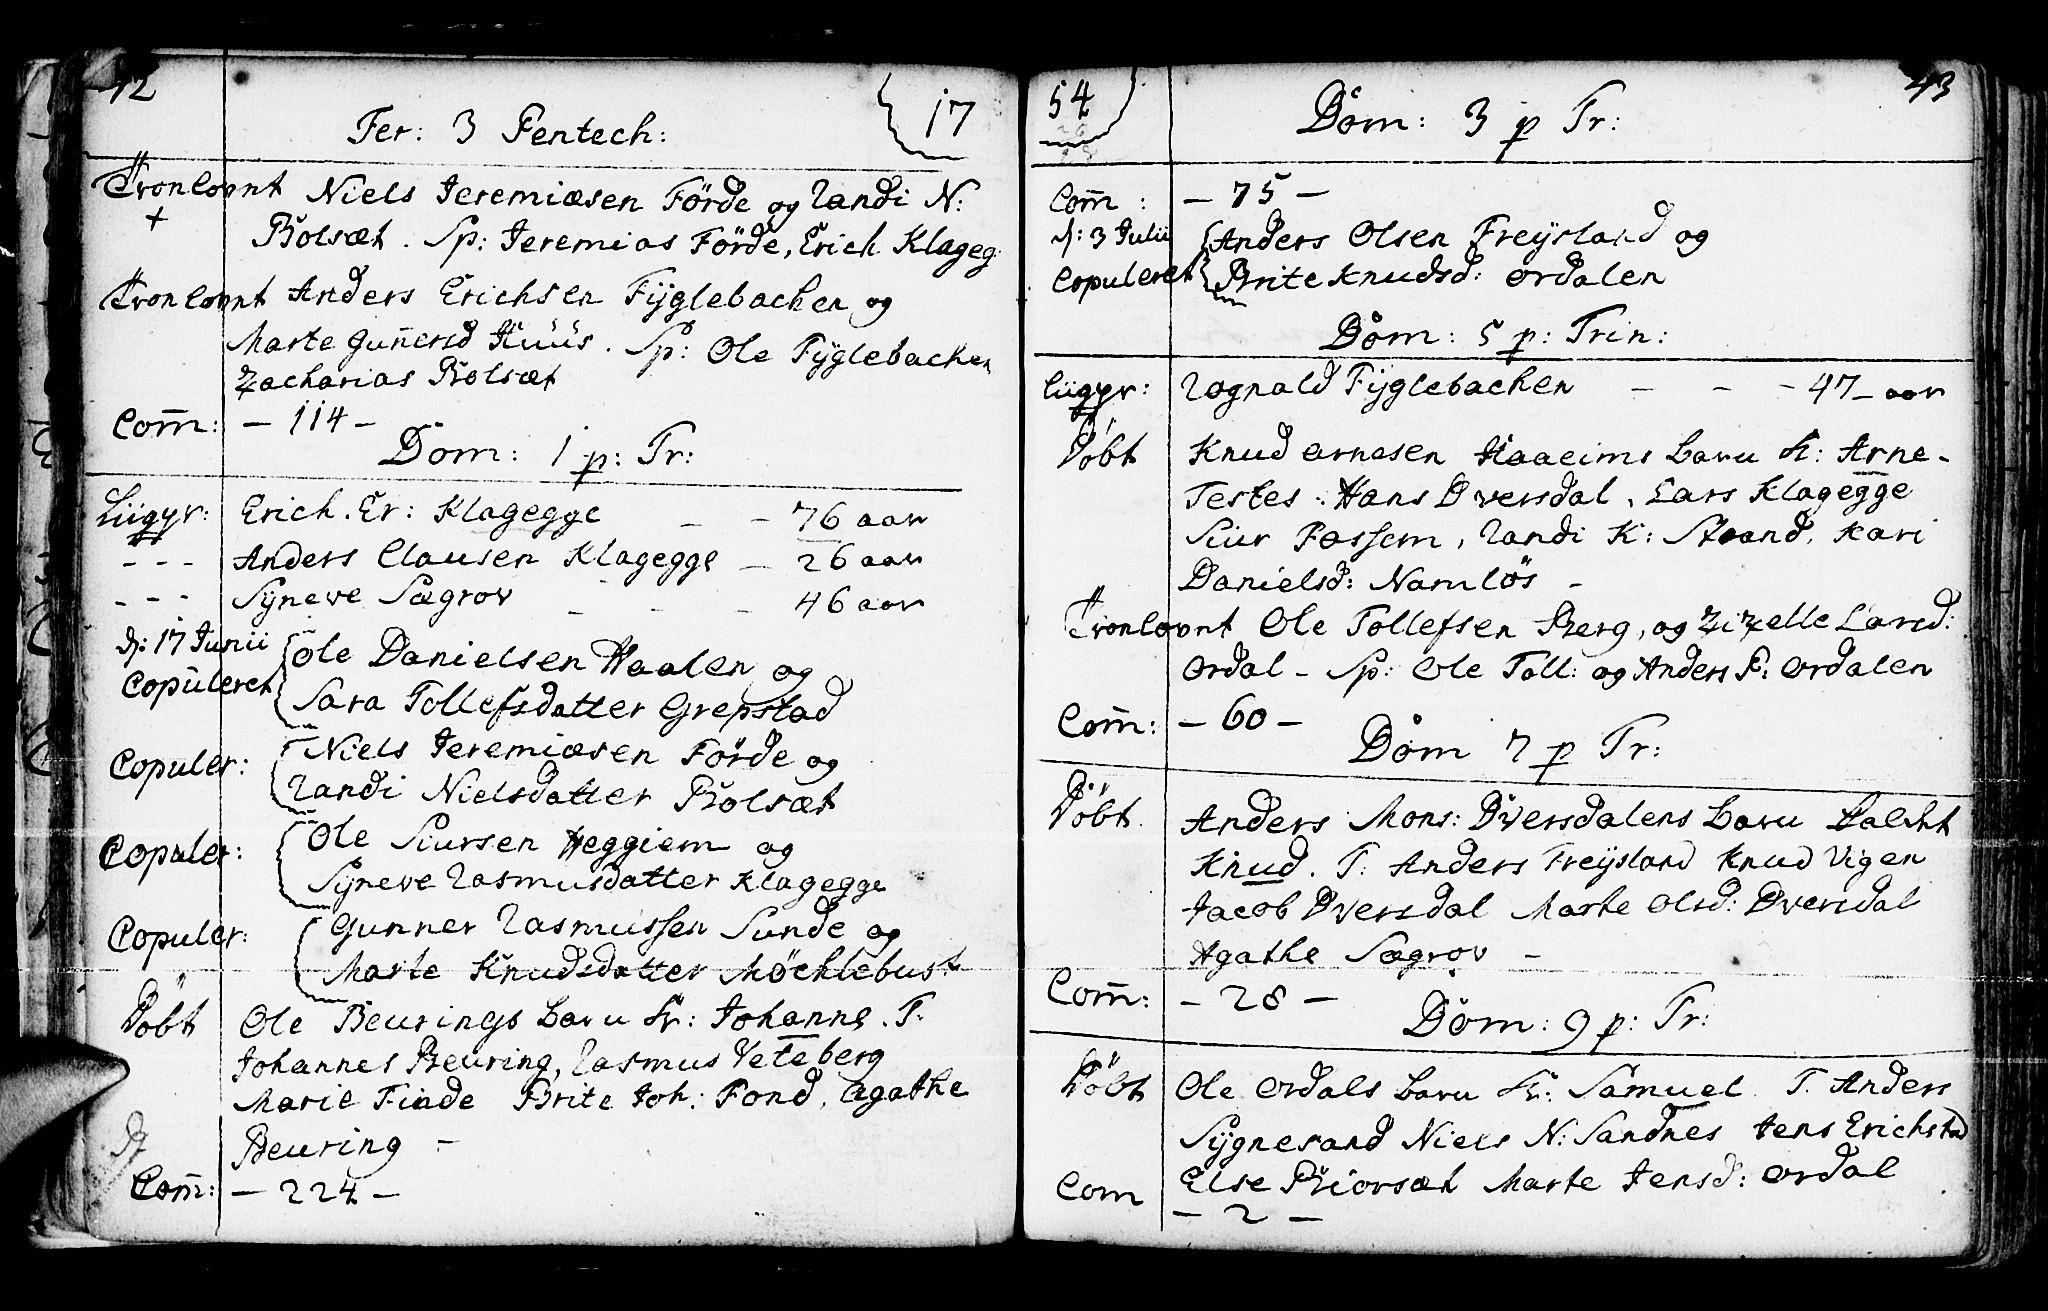 42
17
Fer: 3 Pentech:
Tronlovnt Niels Jeremiæsen Förde og Randi N:
+ Bolsæt. Sp: Jeremias Förde, Erich Klageg:
Tronlovnt Anders Erichsen Fÿglebachen og
Marte Guñersd Huüs. Sp: Ole Fÿglebachen
Zacharias Bolsæt
Com̄: - 114 -
Dom: 1 p: Tr:
Liigpr: Erich. Er: Klagegge - - 76 aar
- - - Anders Clausen Klagegge - 26 aar
- - - Sÿneve Sægrov - - - 46 aar
d: 17 Junii Ole Danielsen Haalen og
Copuleret Sara Tollefsdatter Grepstad
Copuler: Niels Jeremiæsen Förde og
Randi Nielsdatter Bolsæt
Copuler: Ole Siursen Heggiem og
Sÿneve Rasmusdatter Klagegge
Copuler: Gunner Rasmussen Sunde og
Marte Knudsdatter Möchlebust
Döbt Ole Beurings barn K: Johanne. T.
Johannes Beuring, Rasmus Veteberg
Marie Finde Brite Joh: Fond, Agathe
Beuring -
Com̄: - 224 -
54
43
Dom: 3 p Tr:
Com̄: - 75 -
d: 3 Julii Anders Olsen Freÿsland og
Copuleret Brite Knudsd: Ordalen
Dom: 5 p: Trin:
Liigpr: Rognald Fÿglebachen - - - 47 - aar
Döbt Knud Arnesen Haaeims barn K: Arne -
Testes: Hans Dversdal, Lars Klagegge
Siur Fossem, Randi K: Strand, Kari
Danielsd: Namlös -
Tronlovnt Ole Tollefsen Berg, og Zizelle Larsd:
Ordal - Sp: Ole Toll: og Anders P: Ordalen
Com̄: - 60 -
Dom 7 p Tr:
Döbt. Anders Mons: Dversdalens barn kaldet
Knud. T: Anders Freÿsland Knud Vigen
Jacob Dversdal Marte Olsd: Dversdal
Agathe Sægrov -
Com̄: - 28 -
Dom: 9 p: Tr:
Döbt Ole Ordals barn K: Samuel. T. Anders
Sÿgnesand Niels N: Sandnes Jens Erichstad
Else Biorsæt Marte Jensd: Ordal
Com - 2 -